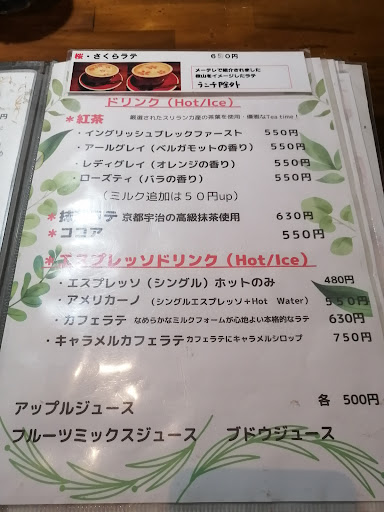 桜・さくらラテ 650円
メーテレで紹介されました
横山をイメージしたラテ
ランチ除外
ドリンク（Hot/Ice）
＊紅茶 厳選されたスリランカ産の茶葉を使用・優雅なTea time！
・イングリッシュブレックファースト 550円
・アールグレイ（ベルガモットの香り） 550円
・レディグレイ（オレンジの香り） 550円
・ローズティ（バラの香り） 550円
（ミルク追加は50円up）
＊抹茶ラテ 京都宇治の高級抹茶使用 630円
＊ココア 550円
＊エスプレッソドリンク（Hot/Ice）
・エスプレッソ（シングル）ホットのみ 480円
・アメリカーノ（シングルエスプレッソ＋Hot Water） 550円
・カフェラテ なめらかなミルクフォームが心地よい本格的なラテ 630円
・キャラメルカフェラテ カフェラテにキャラメルシロップ 750円
アップルジュース 各 500円
フルーツミックスジュース ブドウジュース